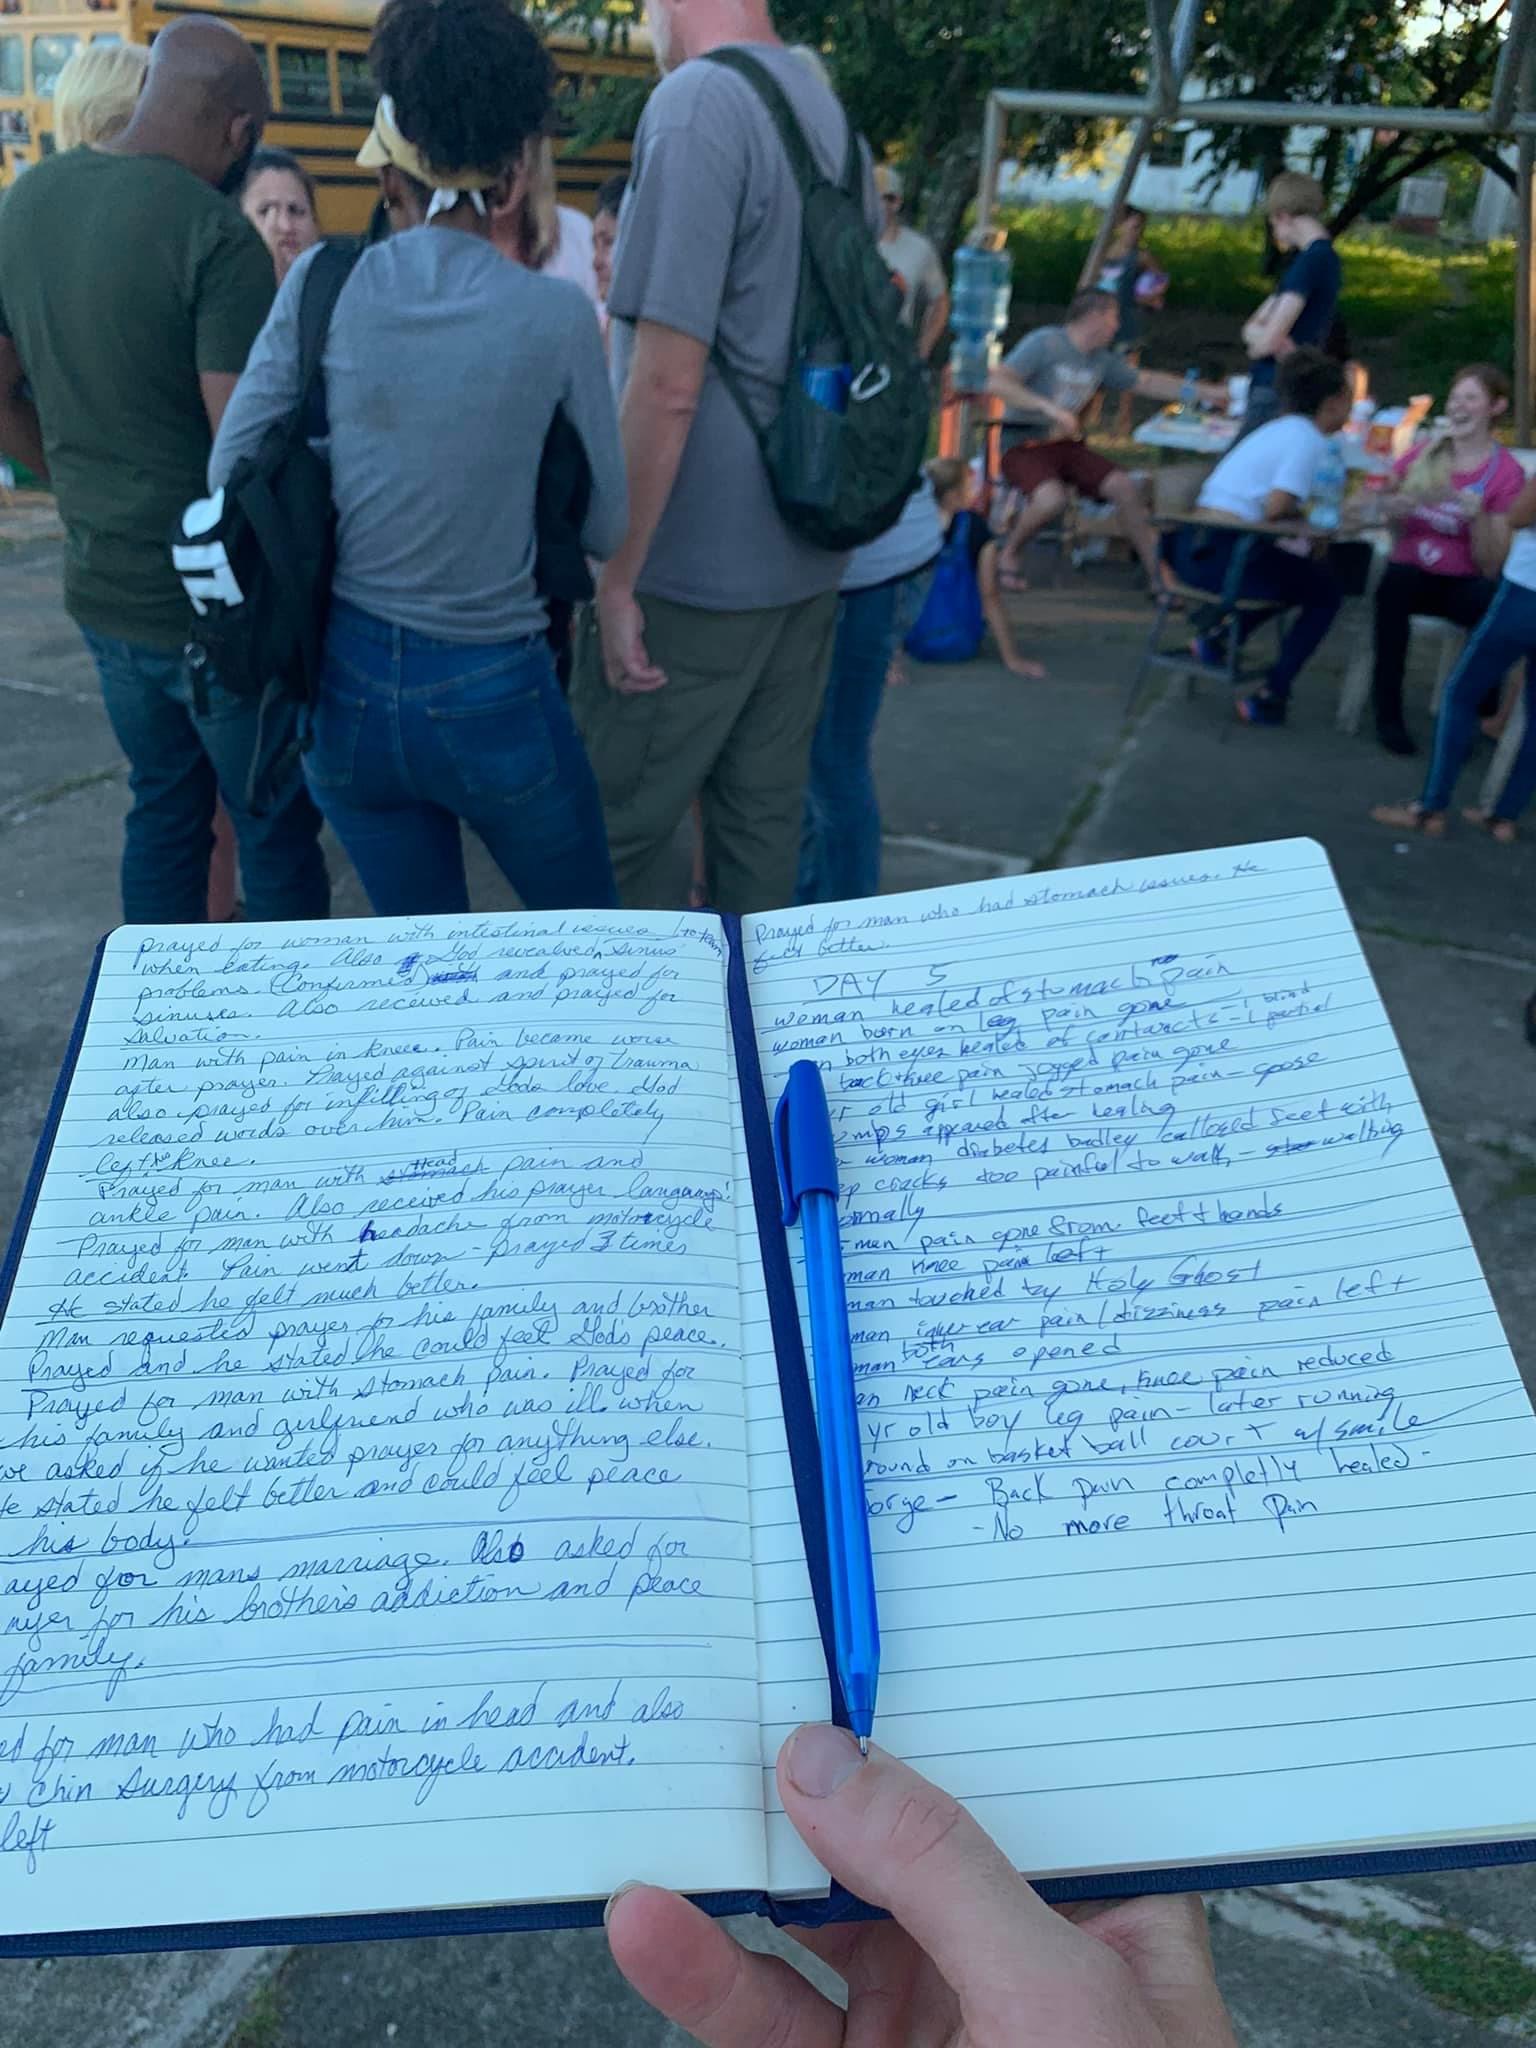 prayed for woman with intestinal issues
when eating. Also God revealed sinus
problems. (Confirmed) and prayed for
sinuses. Also received and prayed for
salvation.
Man with pain in knee. Pain became worse
after prayer. Prayed against spirit of trauma
also prayed for infilling of Gods love. God
released words over him. Pain completely
left the knee.
Prayed for man with stomach Head pain and
ankle pain. Also received his prayer language!
Prayed for man with headache from motorcycle
accident. Pain went down - prayed 3 times
He stated he felt much better.
Man requested prayer for his family and brother
Prayed and he stated he could feel God's peace.
Prayed for man with stomach pain. Prayed for
his family and girlfriend who was ill. when
we asked if he wanted prayer for anything else.
He stated he felt better and could feel peace
his body.
ayed for mans marriage. Also asked for
ayer for his brother's addiction and peace
family.
ed for man who had pain in head and also
chin surgery from motorcycle accident.
left
Prayed for man who had stomach issues. He
felt better.
DAY 5
woman healed of stomach pain
woman born on leg pain gone
both eyes healed of cataracts - 1 blind 1 partial
back + knee pain jogged pain gone
yr old girl healed stomach pain - goose
umps appeared after healing
woman diabetes badley calloused feet with
ep cracks too painful to walk - walking
ormally
man pain gone from feet + hands
man knee pain left
man touched by Holy Ghost
man inner ear pain/dizziness pain left
man both ears opened
an neck pain gone, knee pain reduced
yr old boy leg pain - later running
round on basket ball court w/ smile
orge - Back pain completly healed -
- No more throat pain